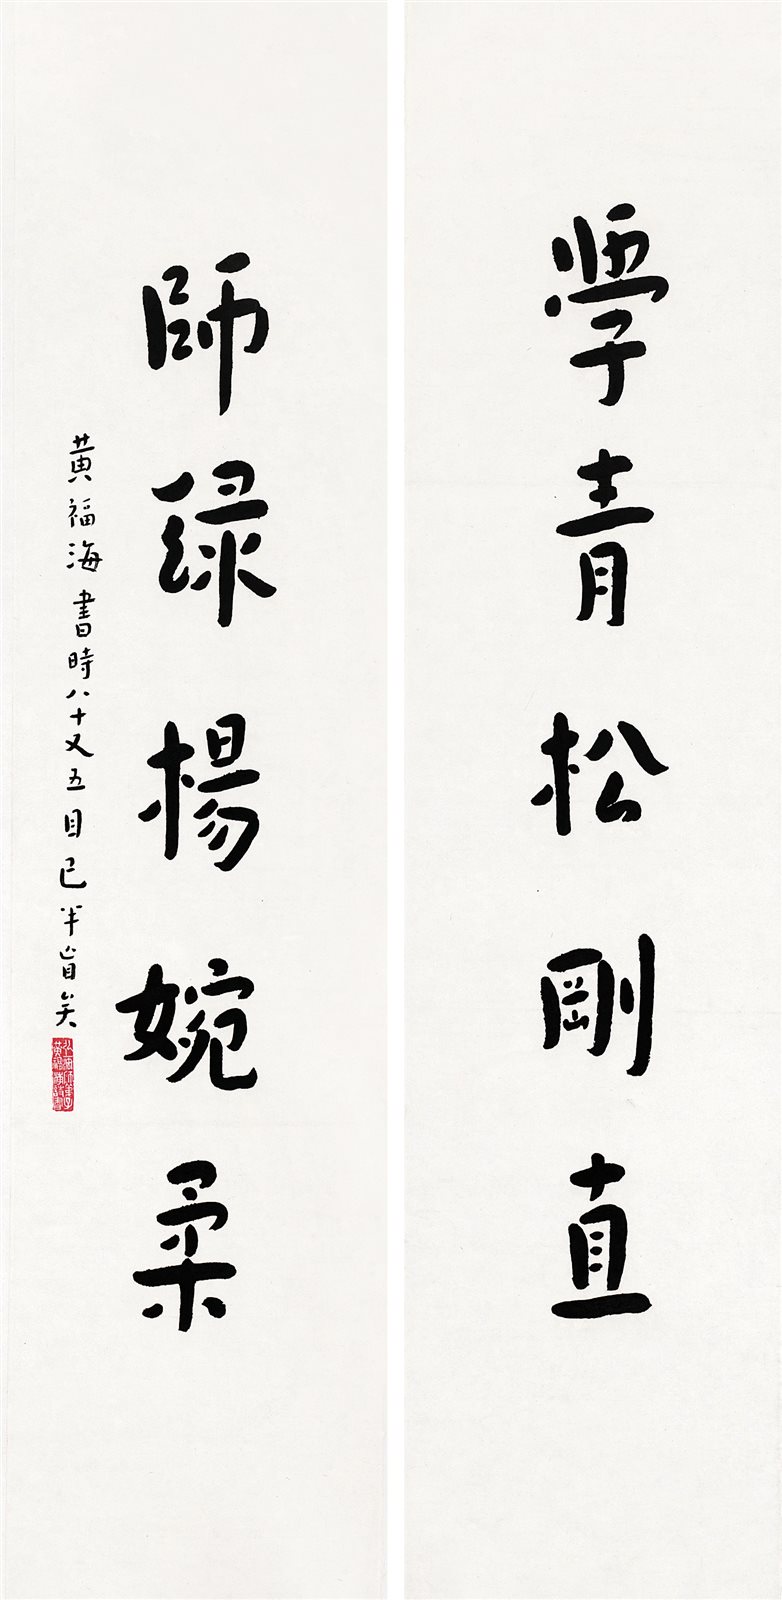 學青松剛直
師緑楊婉柔
黄福海書時八十又五目已半盲矣